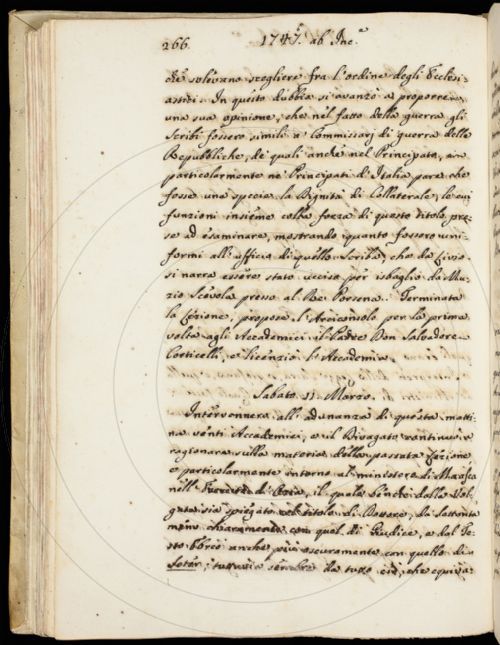 266. 1747. ab Inc.
che solevano scegliere fra l'ordine degli Ecclesi-
astici. In questo dubbio si avanzò a proporre
una sua opinione, che nel fatto della guerra gli
Scribi fossero simili a Commissarj di guerra delle
Repubbliche, de' quali anche nel Principato, e
particolarmente ne' Principati di Italia pare che
fosse una specie la Dignità di Collaterale, le cui
funzioni insieme colla forza di questo titolo pre-
se ad esaminare, mostrando quanto fossero uni-
formi all'uffizio di quello Scriba, che da Livio
si narra essere stato ucciso per isbaglio da Mu-
zio Scevola presso al Re Porsena. Terminata
la Lezione, propose l'Arciconsolo per la prima
volta agli Accademici il Padre Don Salvadore
Corticelli, e licenziò l'Accademia.
Sabato 11 Marzo.
Intervennero all'adunanza di questa matti-
na venti Accademici, e il Rivagato continuò a
ragionare sulla materia della passata Lezione
e particolarmente intorno al ministero di
nell' di, il quale benchè dalla Vol-
gata sia spiegato col titolo di Dottore, da Settanta
meno chiaramente con quel di Giudice, e dal Te-
sto Ebreo anche più oscuramente con quello di
Soter; tuttavia da tutto ciò, che equiva-